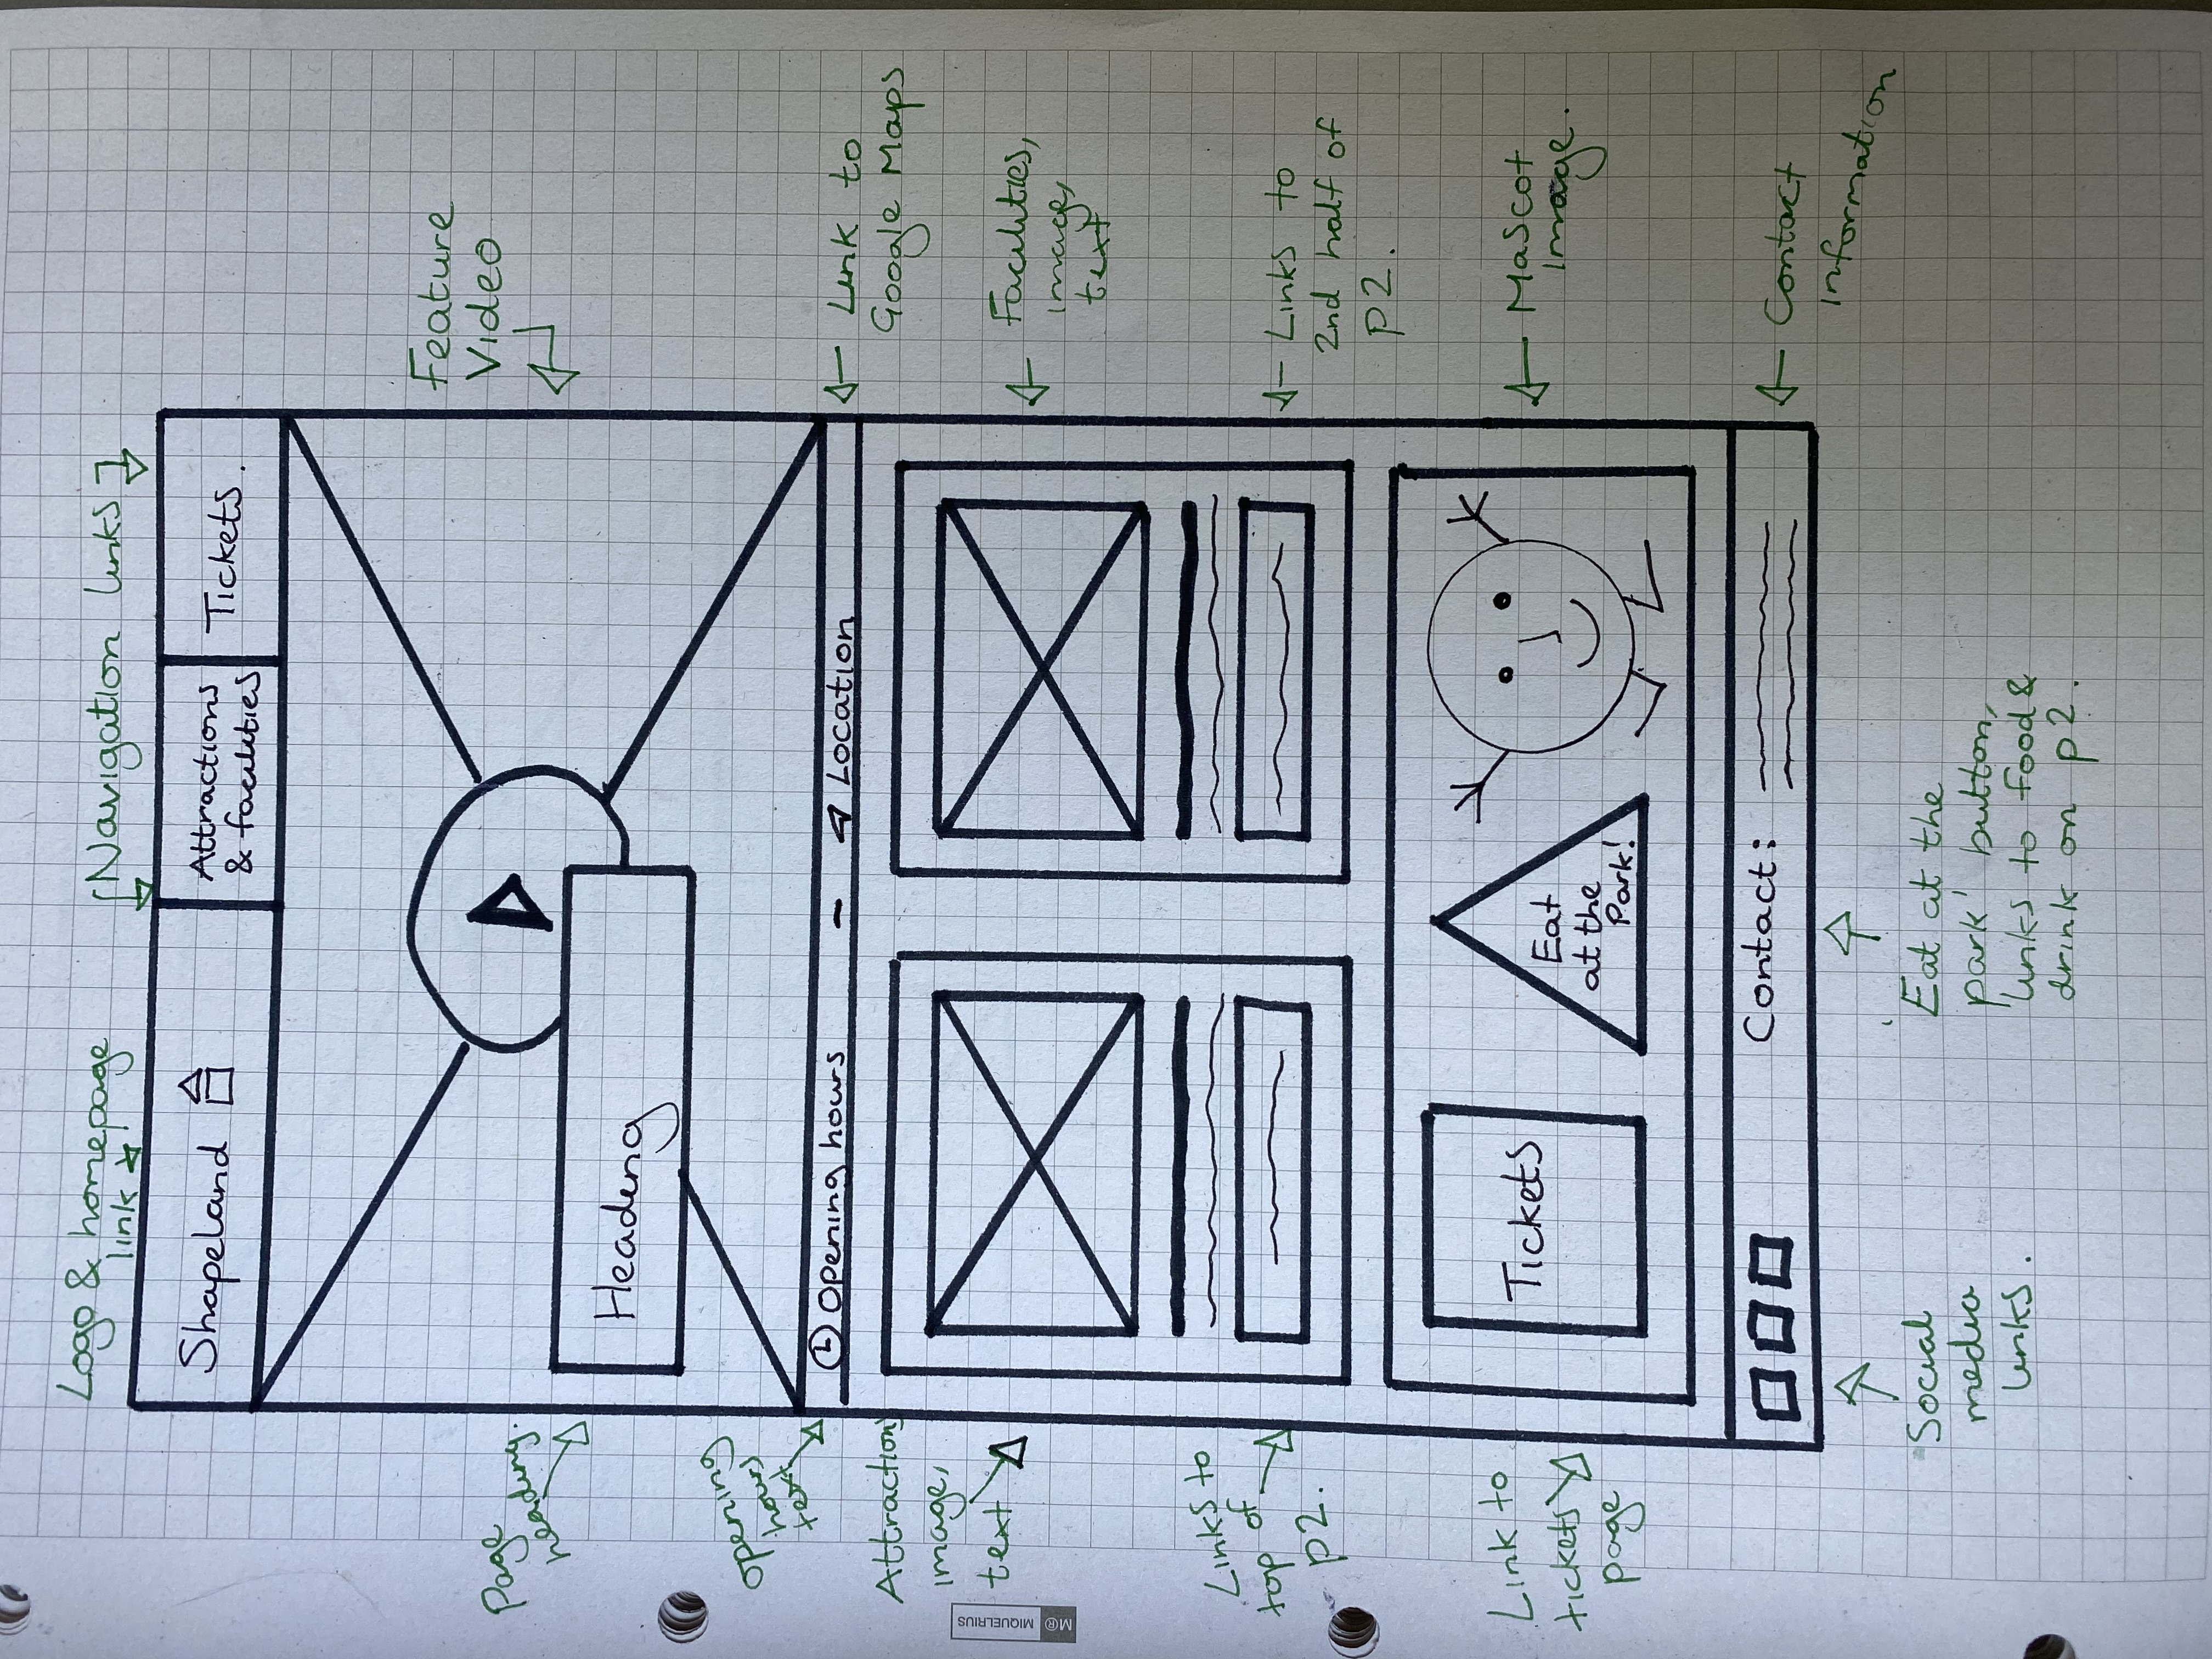 Logo & homepage
link
Navigation links
Shapeland
Attractions
& facilities
Tickets.
Feature
Video
Page
heading.
Heading
Opening
hours
text
Opening hours - Location
Link to
Google Maps
Attractions
image,
text
Facilities,
image,
text
Links to
top of
p2.
Links to
2nd half of
p2.
Link to
tickets
page
Tickets
Eat
at the
Park!
Mascot
image.
Contact:
Contact
information
Social
media
links.
'Eat at the
park' button,
links to food &
drink on p2.
M® MIQUELRIUS